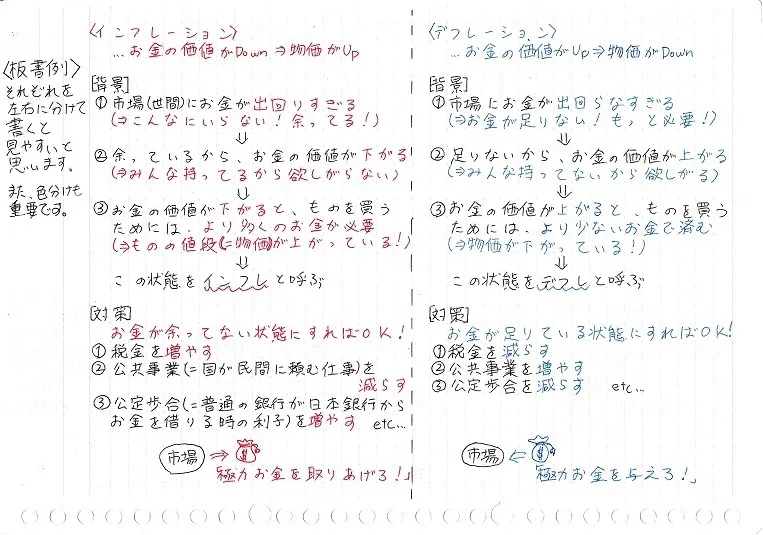 〈板書例〉
それぞれを
左右に分けて
書くと
見やすいと
思います。
また、色分けも
重要です。
〈インフレーション〉
…お金の価値がDown ⇒物価がUp
[背景]
①市場(世間)にお金が出回りすぎる
(⇒こんなにいらない！余ってる！)
⇓
②余っているから、お金の価値が下がる
(⇒みんな持ってるから欲しがらない)
⇓
③お金の価値が下がると、ものを買う
ためには、より多くのお金が必要
(⇒ものの値段(=物価)が上がっている！)
⇓
この状態をインフレと呼ぶ
[対策]
お金が余ってない状態にすればOK！
①税金を増やす
②公共事業(=国が民間に頼む仕事)を
減らす
③公定歩合(=普通の銀行が日本銀行から
お金を借りる時の利子)を増やす etc…
市場 ⇒ $
「極力お金を取りあげろ！」
〈デフレーション〉
…お金の価値がUp⇒物価がDown
[背景]
①市場にお金が出回らなすぎる
(⇒お金が足りない！もっと必要！)
⇓
②足りないから、お金の価値が上がる
(⇒みんな持ってないから欲しがる)
⇓
③お金の価値が上がると、ものを買う
ためには、より少ないお金で済む
(⇒物価が下がっている！)
⇓
この状態をデフレと呼ぶ
[対策]
お金が足りている状態にすればOK！
①税金を減らす
②公共事業を増やす
③公定歩合を減らす etc…
市場 ⇐ $
「極力お金を与えろ！」